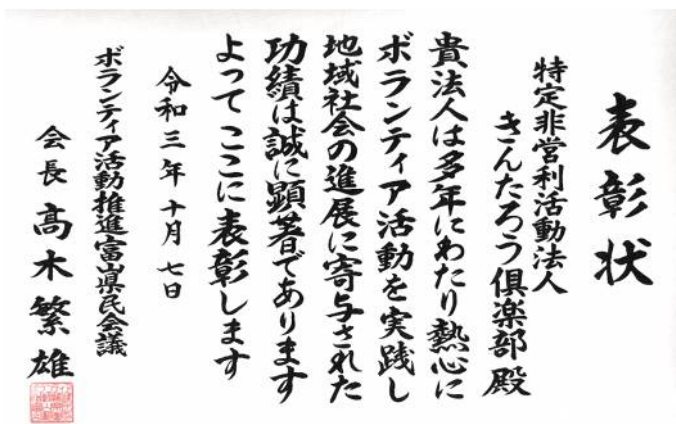 表彰状
特定非営利活動法人
きんたろう倶楽部 殿
貴法人は多年にわたり熱心に
ボランティア活動を実践し
地域社会の進展に寄与された
功績は誠に顕著であります
よって ここに表彰します
令和三年十月七日
ボランティア活動推進富山県民会議
会長 髙木繁雄